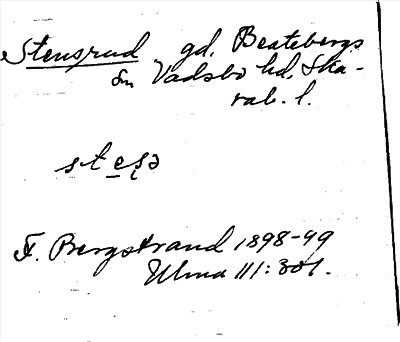 Stensrud gd, Beatebergs
sn Vadsbo hd, Ska-
rab. l.
st e̲ s̨ə
F. Bergstrand 1898-99
Ulma 111:301.